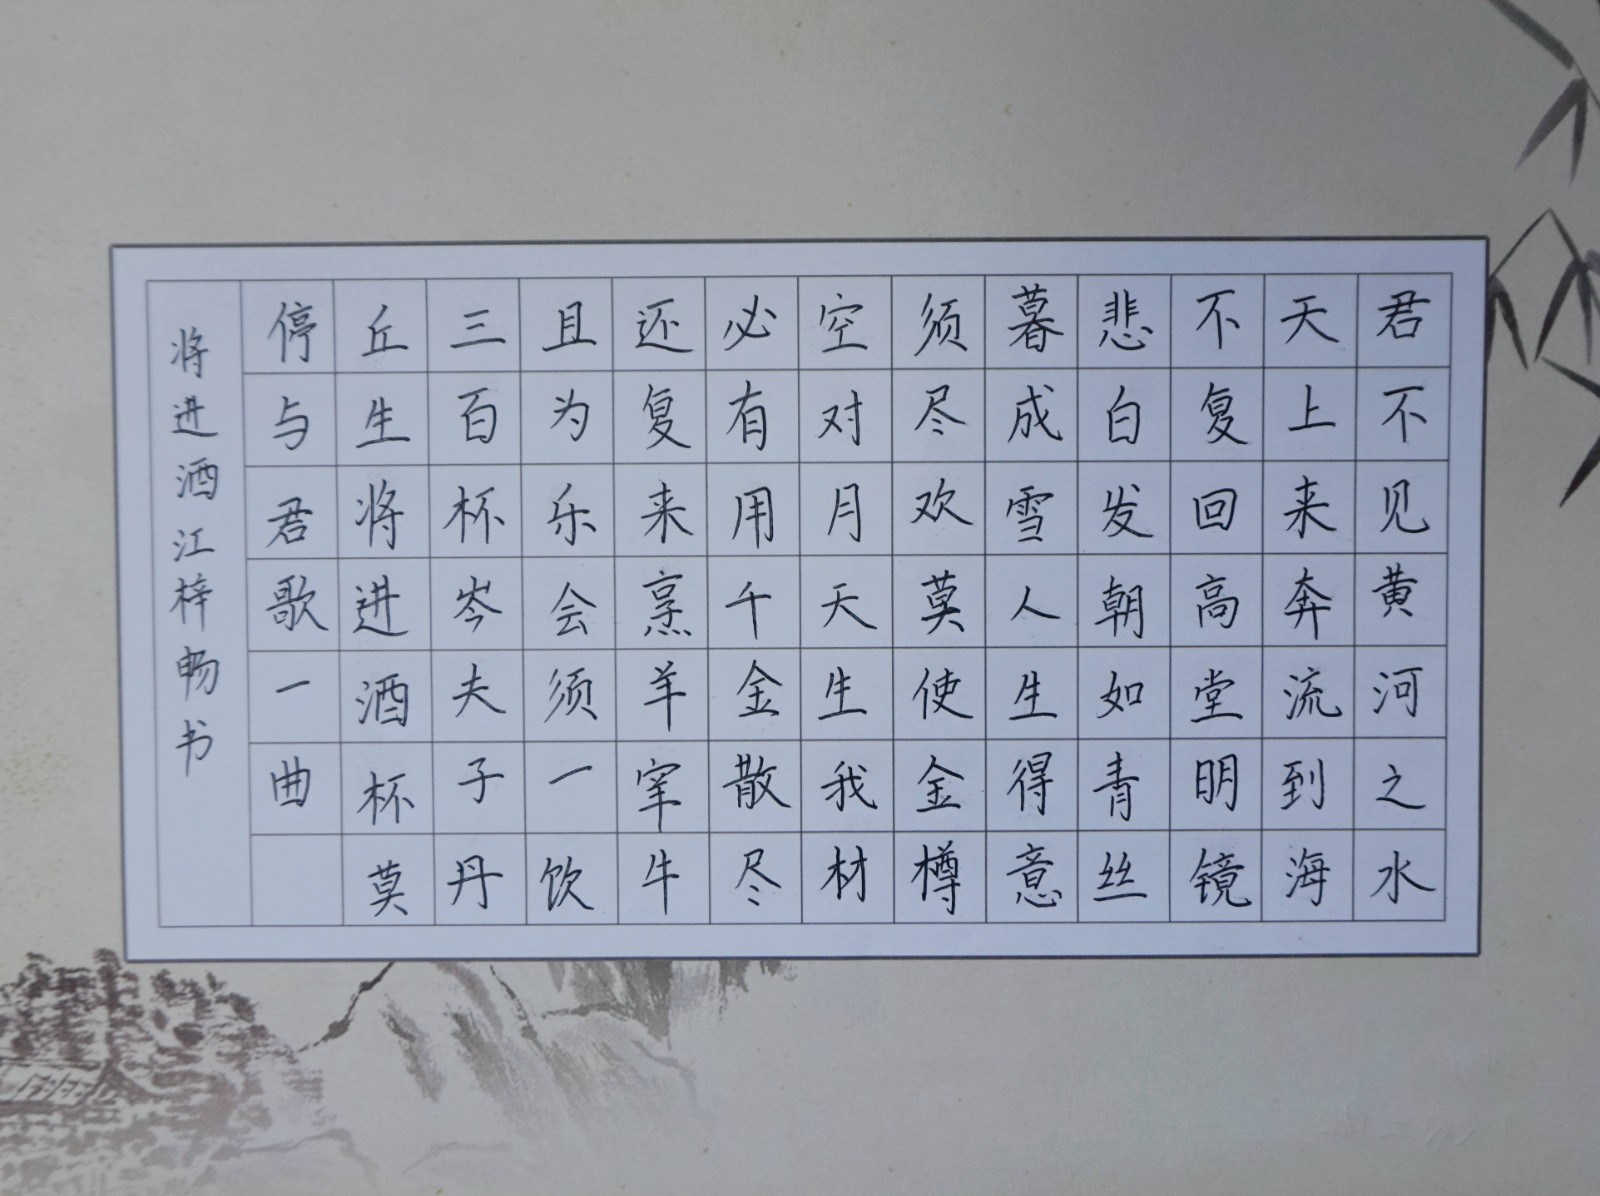 君不见黄河之水
天上来奔流到海
不复回高堂明镜
悲白发朝如青丝
暮成雪人生得意
须尽欢莫使金樽
空对月天生我材
必有用千金散尽
还复来烹羊宰牛
且为乐会须一饮
三百杯岑夫子丹
丘生将进酒杯莫
停与君歌一曲
将进酒江梓畅书